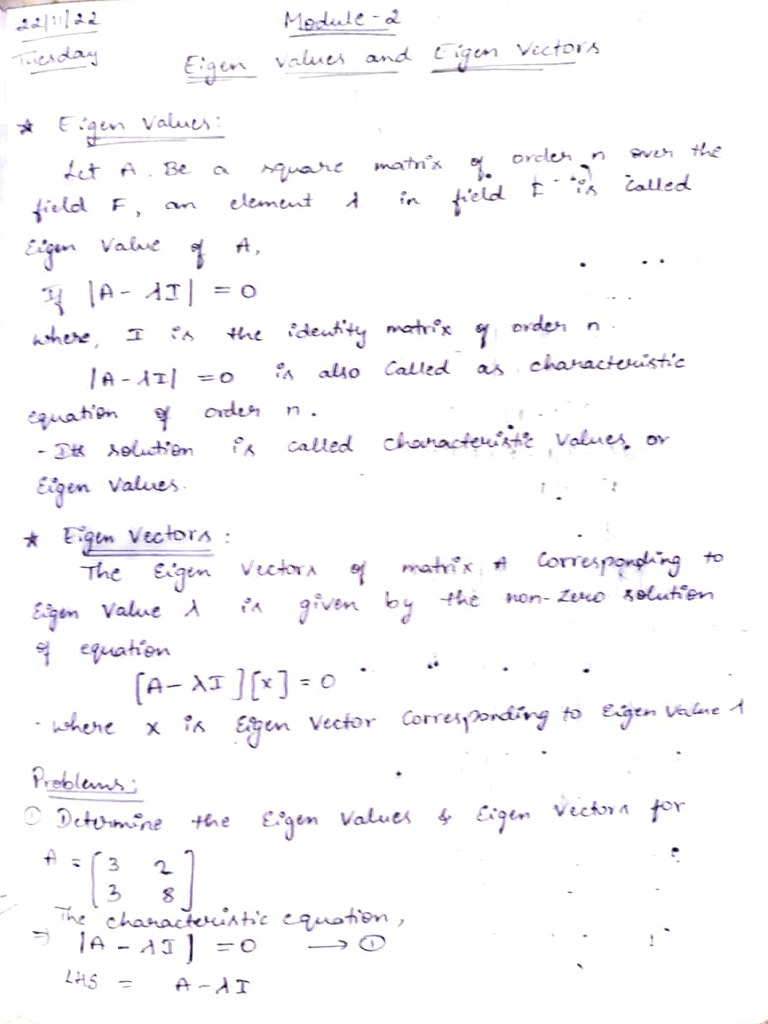 22/11/22
Module-2
Tuesday
Eigen Values and Eigen Vectors
* Eigen Values:
Let A. Be a square matrix of order n over the
field F, an element λ in field F is called
Eigen Value of A,
If |A - λI| = 0
where, I is the identity matrix of order n.
|A-λI| = 0 is also Called as characteristic
equation of order n.
- Its solution is called characteristic values or
Eigen Values.
* Eigen Vectors:
The Eigen Vectors of matrix A Corresponding to
Eigen Value λ is given by the non-zero solution
of equation
[A-λI][x] = 0
- where x is Eigen Vector Corresponding to Eigen Value λ
Problems:
① Determine the Eigen Values & Eigen Vectors for
A = [3 2
3 8]
The characteristic equation,
⇒ |A - λI| = 0 → ①
LHS = A - λI